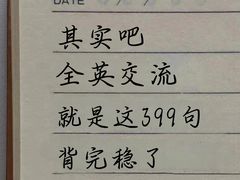 DATE
其实吧
全英交流
就是这399句
背完稳了